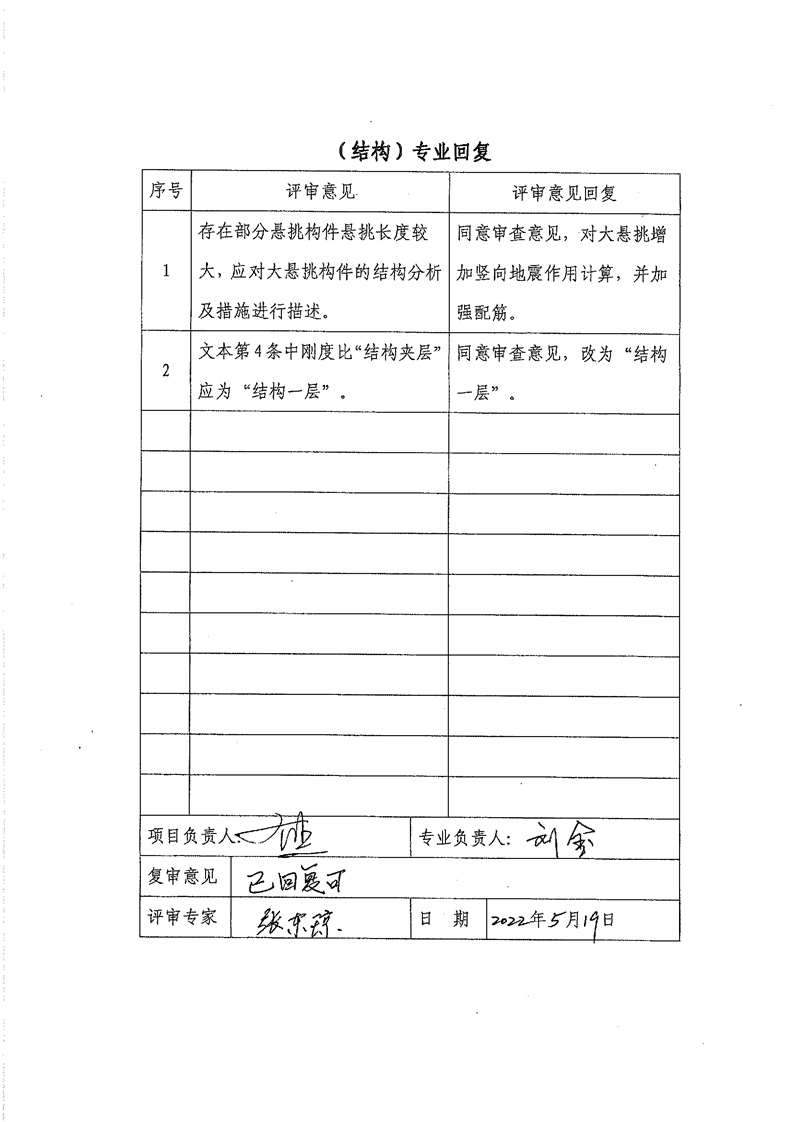 （结构）专业回复
序号 评审意见 评审意见回复
1
存在部分悬挑构件悬挑长度较
大，应对大悬挑构件的结构分析
及措施进行描述。
同意审查意见，对大悬挑增
加竖向地震作用计算，并加
强配筋。
2
文本第4条中刚度比“结构夹层”
应为“结构一层”。
同意审查意见，改为“结构
一层”。
项目负责人: 专业负责人: 刘
复审意见 已回复可
评审专家 张东琼.
日 期 2022年5月19日